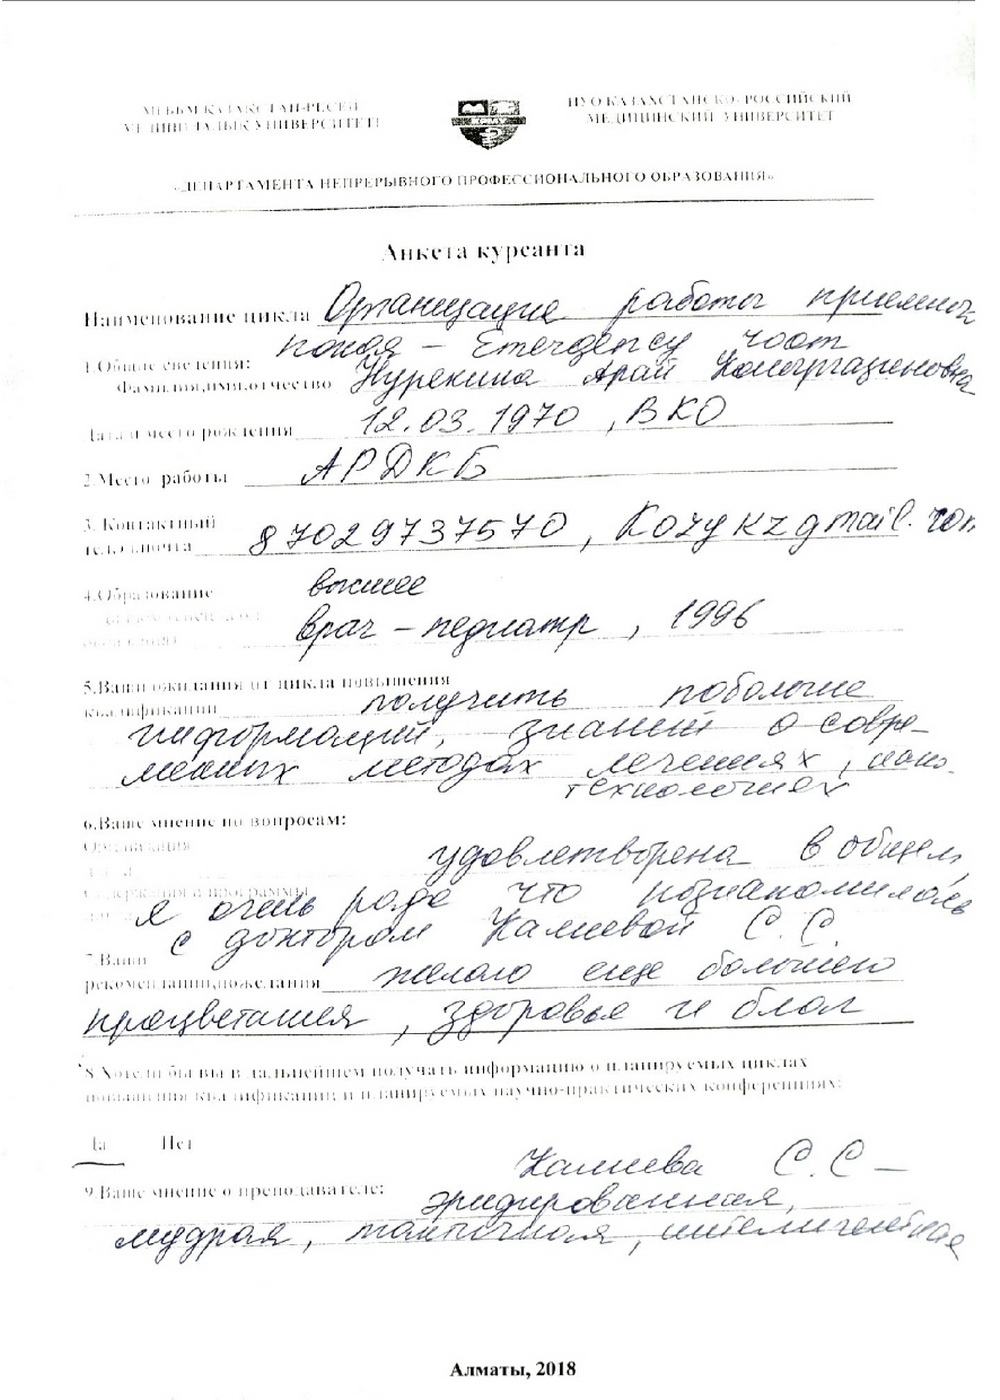 МЕББМ КАЗАКСТАН-РЕСЕЙ НУО КАЗАХСТАНСКО-РОССИЙСКИЙ
УНИВЕРСИТЕТІ МЕДИЦИНСКИЙ УНИВЕРСИТЕТ
«ДЕПАРТАМЕНТА НЕПРЕРЫВНОГО ПРОФЕССИОНАЛЬНОГО ОБРАЗОВАНИЯ»
Анкета курсанта
Наименование цикла Организация работы приемного
покоя – Emergency room
1.Общие сведения:
Фамилия,имя,отчество Нурекина Арай
Дата и место рождения 12.03.1970 , ВКО
2.Место работы АРДКБ
3. Контактный
тел,эл.почта 87029737570, Kozykz gmail.com
4.Образование высшее
врач – педиатр , 1996
5.Ваши ожидания от цикла повышения
квалификации получить побольше
информаций, знаний о совре-
менных методах лечениях , нано-
технологиях
6.Ваше мнение по вопросам:
Организация
удовлетворена в общем,
содержания программы
я очень рада что познакомилась
с доктором Калиевой С. С.
7.Ваши
рекомендации,пожелания желаю еще большего
процветания , здоровье и благ
8.Хотели бы вы в дальнейшем получать информацию о планируемых циклах
повышения квалификации и планируемых научно-практических конференциях:
Да Нет
Калиева С.С –
9.Ваше мнение о преподавателе: эридированная,
мудрая, тактичная, интелигентная
Алматы, 2018